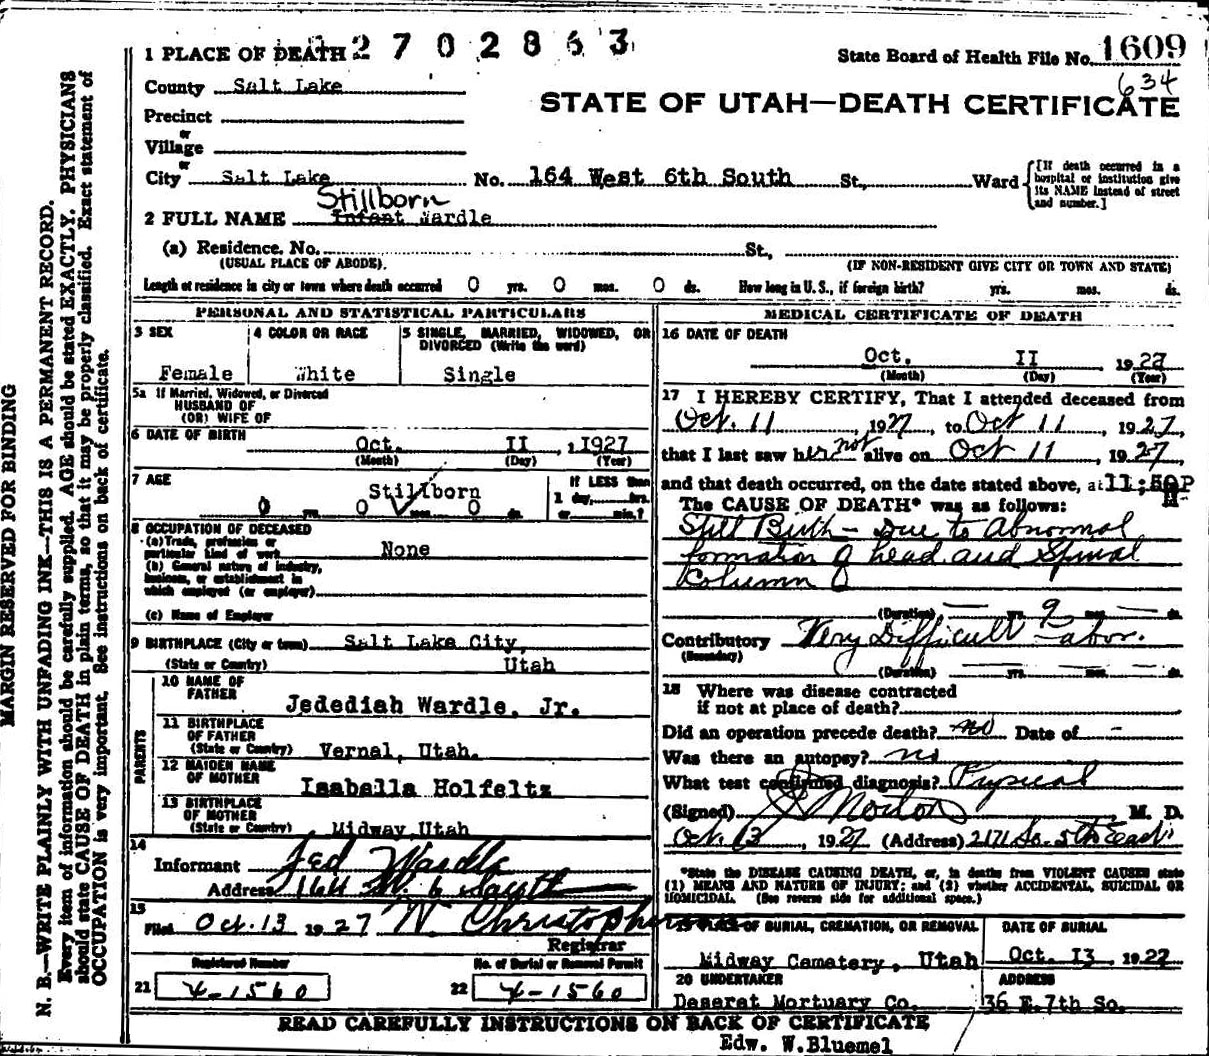 1 PLACE OF DEATH 2702863 State Board of Health File No. 1609
634
County Salt Lake
STATE OF UTAH—DEATH CERTIFICATE
Precinct
or
Village
or
City Salt Lake No. 164 West 6th South St., Ward [If death occurred in a hospital or institution give its NAME instead of street and number.]
Stillborn
2 FULL NAME Infant Wardle
(a) Residence. No. St.,
(USUAL PLACE OF ABODE). (IF NON-RESIDENT GIVE CITY OR TOWN AND STATE)
Length of residence in city or town where death occurred 0 yrs. 0 mos. 0 ds. How long in U. S., if foreign birth? yrs. mos. ds.
PERSONAL AND STATISTICAL PARTICULARS
3 SEX
Female
4 COLOR OR RACE
White
5 SINGLE, MARRIED, WIDOWED, OR DIVORCED (Write the word)
Single
5a If Married, Widowed, or Divorced
HUSBAND OF
(OR) WIFE OF
6 DATE OF BIRTH
Oct. II , 1927
(Month) (Day) (Year)
7 AGE
Stillborn
0 yrs. 0 mos. 0 ds.
If LESS than
1 day, hrs.
or min.?
8 OCCUPATION OF DECEASED
(a) Trade, profession or
particular kind of work None
(b) General nature of industry,
business, or establishment in
which employed (or employer)
(c) Name of Employer
9 BIRTHPLACE (City or town) Salt Lake City,
(State or Country) Utah
PARENTS
10 NAME OF
FATHER Jedediah Wardle, Jr.
11 BIRTHPLACE
OF FATHER
(State or Country) Vernal, Utah.
12 MAIDEN NAME
OF MOTHER Isabella Holfeltz
13 BIRTHPLACE
OF MOTHER
(State or Country) Midway Utah
14
Informant Jed Wardle
Address 164 W. 6 South
15
Filed Oct. 13 1927 W Christopherson
Registrar
Registered Number
21 4-1560
No. of Burial or Removal Permit
22 4-1560
MEDICAL CERTIFICATE OF DEATH
16 DATE OF DEATH
Oct. II 1927
(Month) (Day) (Year)
17 I HEREBY CERTIFY, That I attended deceased from
Oct. 11, 1927, to Oct 11, 1927,
that I last saw her not alive on Oct 11, 1927,
and that death occurred, on the date stated above, at 11;50P
M
The CAUSE OF DEATH* was as follows:
Still Birth - Due to Abnormal
formation of head and Spinal
Column
(Duration) — yrs. 9 mos. — ds.
Contributory Very Difficult Labor.
(Secondary)
(Duration) yrs. mos. ds.
18 Where was disease contracted
if not at place of death?
Did an operation precede death? no Date of -
Was there an autopsy? no
What test confirmed diagnosis? Pysical
(Signed) Morton M. D.
Oct. 13, 1927 (Address) 2171 So. 5th East
*State the DISEASE CAUSING DEATH, or, in deaths from VIOLENT CAUSES state
(1) MEANS AND NATURE OF INJURY; and (2) whether ACCIDENTAL, SUICIDAL OR
HOMICIDAL. (See reverse side for additional space.)
19 PLACE OF BURIAL, CREMATION, OR REMOVAL
Midway Cametery, Utah
DATE OF BURIAL
Oct. I3, 1927
20 UNDERTAKER
Deseret Mortuary Co.
ADDRESS
36 E. 7th So.
READ CAREFULLY INSTRUCTIONS ON BACK OF CERTIFICATE
Edw. W.Bluemel
MARGIN RESERVED FOR BINDING
N. B.—WRITE PLAINLY WITH UNFADING INK—THIS IS A PERMANENT RECORD.
Every item of information should be carefully supplied. AGE should be stated EXACTLY. PHYSICIANS
should state CAUSE OF DEATH in plain terms, so that it may be properly classified. Exact statement of
OCCUPATION is very important. See instructions on back of certificate.